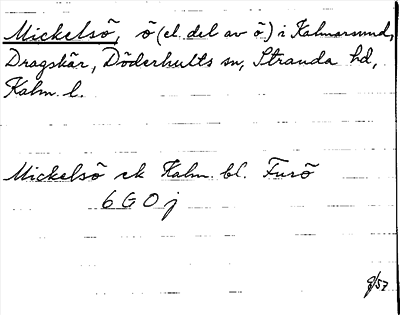 Mickelsö, ö (el. del av ö) i Kalmarsund,
Dragskär, Döderhults sn, Stranda hd,
Kalm. l.
Mickelsö ek Kalm. bl. Furö
6 G 0 j
9/57